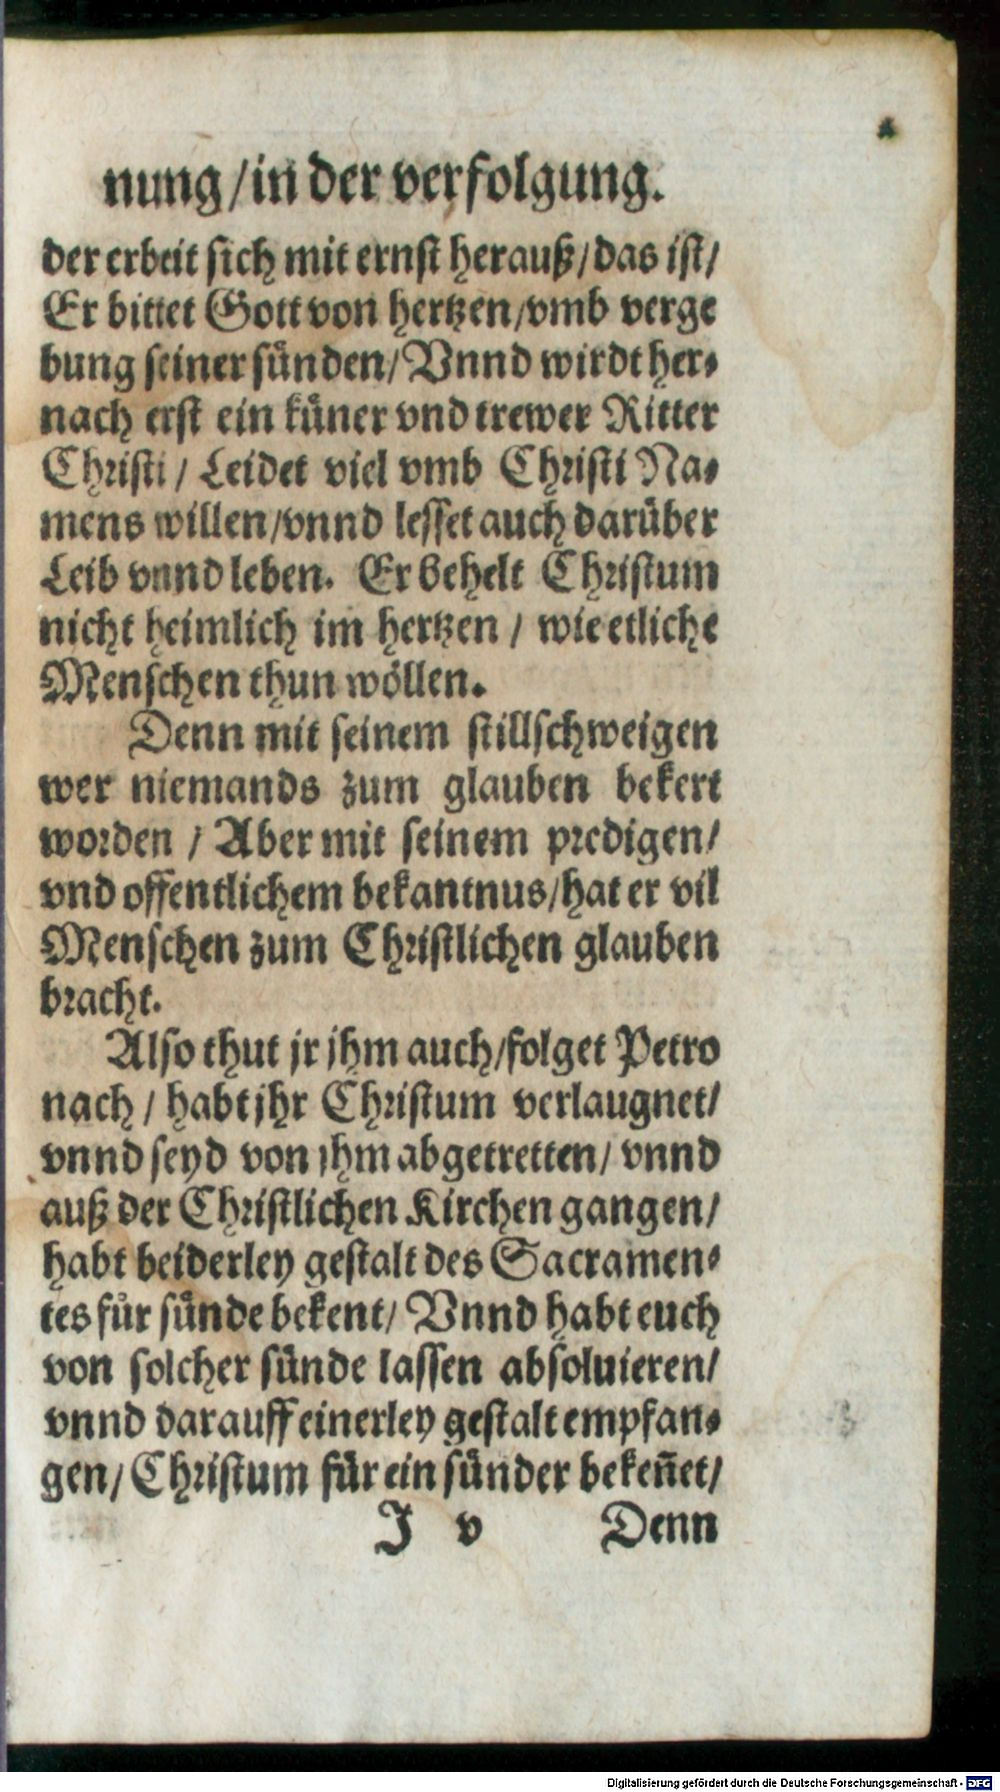 nung/in der verfolgung.
der erbeit sich mit ernst herauß/das ist/
Er bittet Gott von hertzen/vmb verge
bung seiner sünden/Vnnd wirdt her⸗
nach erst ein küner vnd trewer Ritter
Christi/ Leidet viel vmb Christi Na⸗
mens willen/vnnd lesset auch darüber
Leib vnnd leben. Er behelt Christum
nicht heimlich im hertzen/ wie etliche
Menschen thun wöllen.
Denn mit seinem stillschweigen
wer niemands zum glauben bekert
worden / Aber mit seinem predigen/
vnd offentlichem bekantnus/hat er vil
Menschen zum Christlichen glauben
bracht.
Also thut jr jhm auch/folget Petro
nach/ habt jhr Christum verlaugnet/
vnnd seyd von jhm abgetretten/ vnnd
auß der Christlichen Kirchen gangen/
habt beiderley gestalt des Sacramen⸗
tes für sünde bekent/ Vnnd habt euch
von solcher sünde lassen absoluieren/
vnnd darauff einerley gestalt empfan⸗
gen/Christum für ein sünder bekeñet/
J v Denn
Digitalisierung gefördert durch die Deutsche Forschungsgemeinschaft - DFG